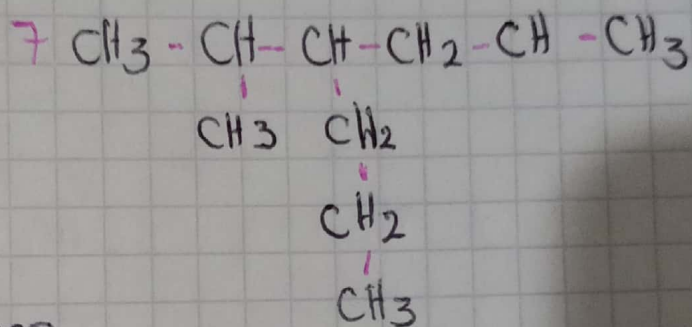 7 CH3 - CH - CH - CH2 - CH - CH3
CH3 CH2
CH2
CH3